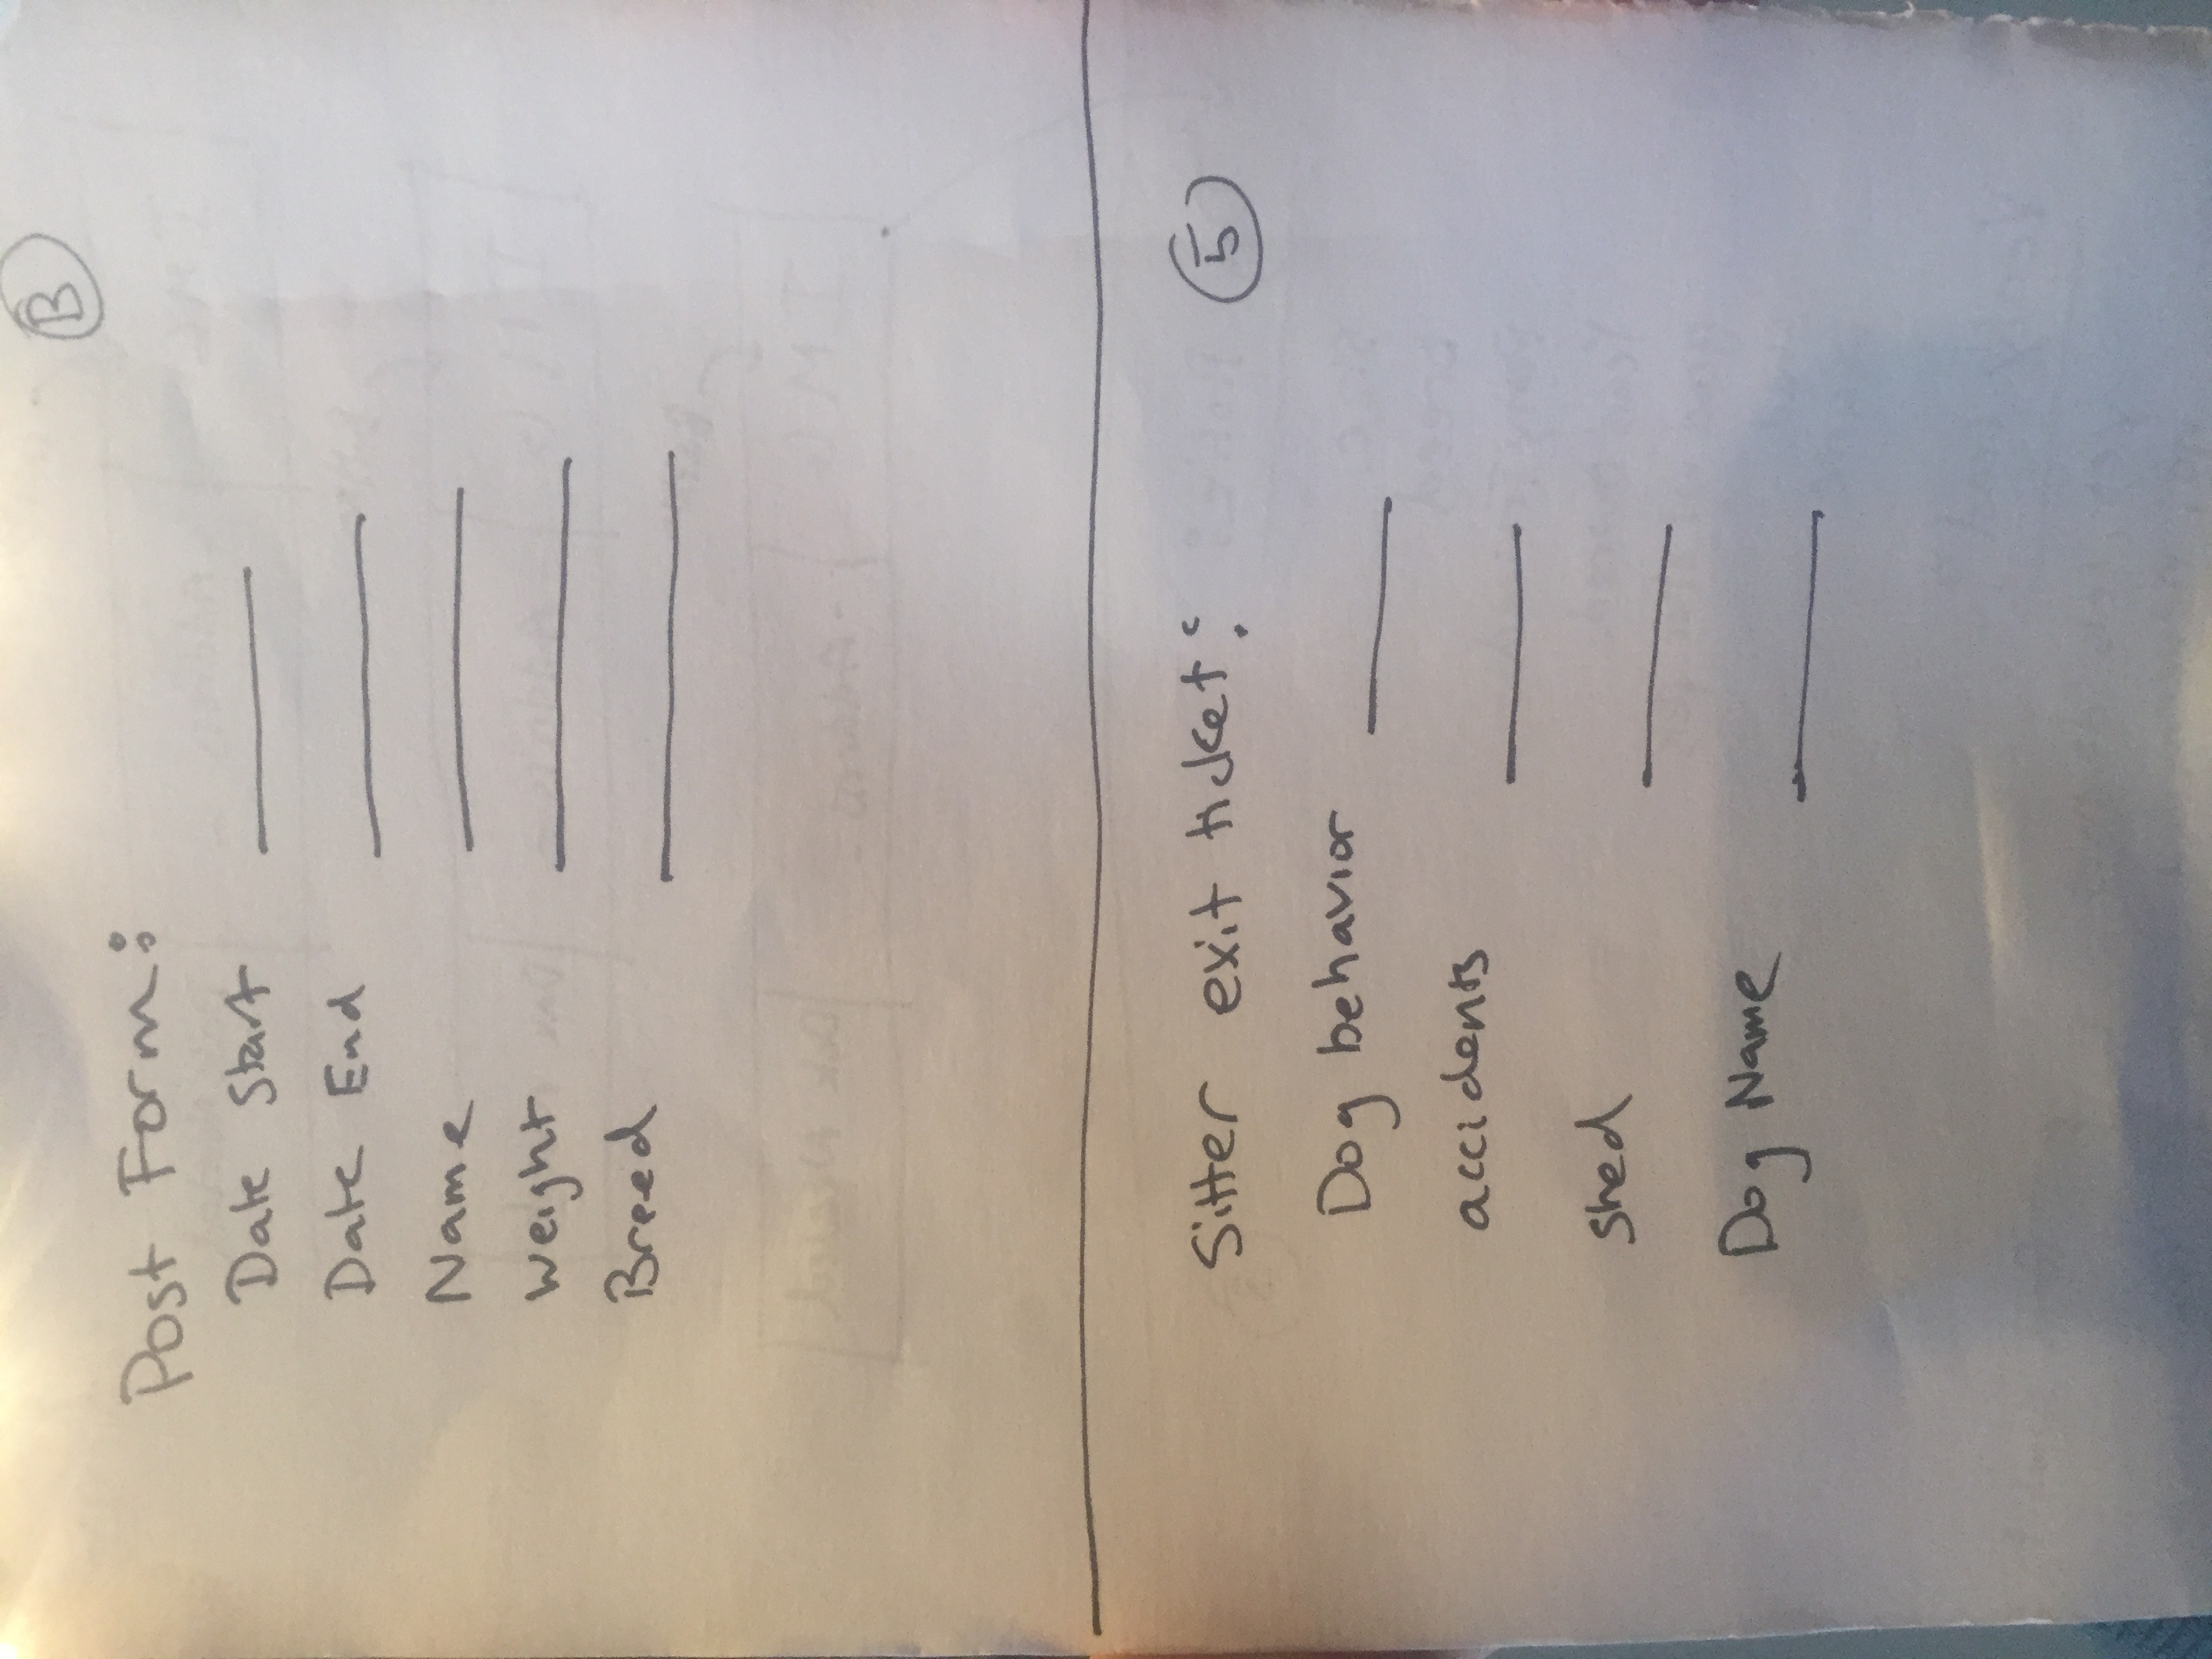 B
Post Form:
Date Start
Date End
Name
Weight
Breed
Sitter exit ticket:
5
Dog behavior
accidents
shed
Dog Name